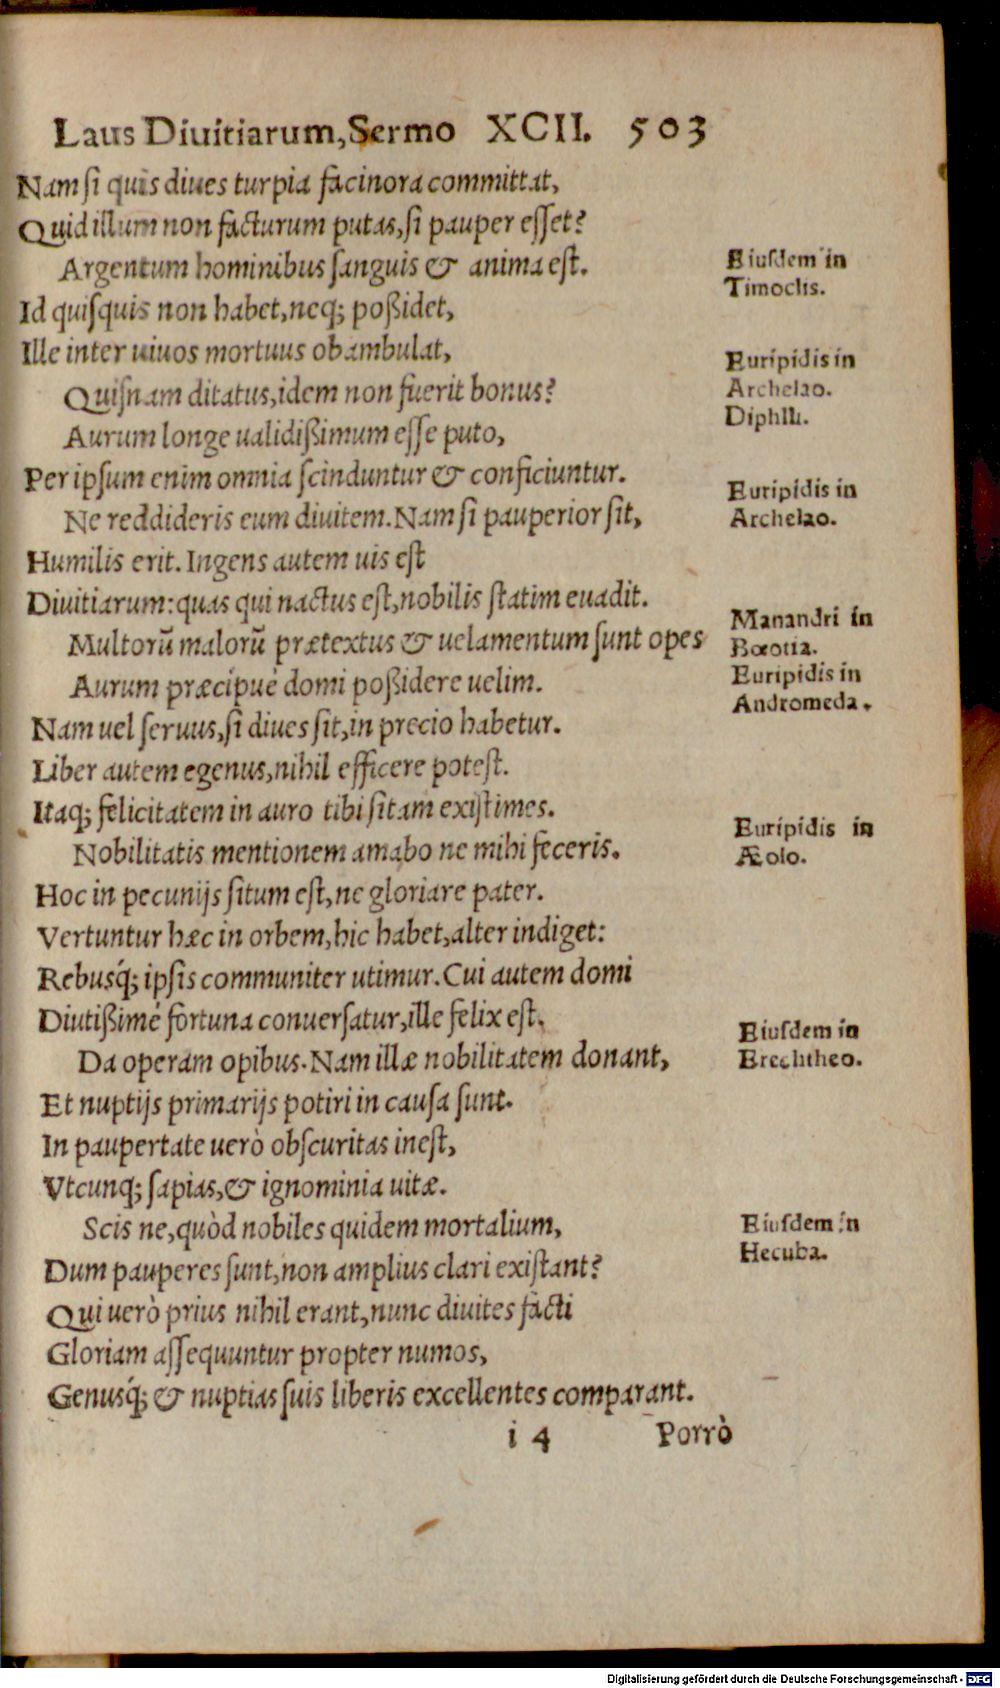 Laus Diuitiarum, Sermo XCII. 503
Nam si quis diues turpia facinora committat,
Quid illum non facturum putas, si pauper esset?
Argentum hominibus sanguis & anima est.
Eiusdem in
Timoclis.
Id quisquis non habet, neq; poßidet,
Ille inter uiuos mortuus obambulat,
Quisnam ditatus, idem non fuerit bonus?
Euripidis in
Archelao.
Aurum longe ualidißimum esse puto,
Diphili.
Per ipsum enim omnia scinduntur & conficiuntur.
Ne reddideris eum diuitem. Nam si pauperior sit,
Euripidis in
Archelao.
Humilis erit. Ingens autem uis est
Diuitiarum: quas qui nactus est, nobilis statim euadit.
Multorũ malorũ prætextus & uelamentum sunt opes
Manandri in
Bœotia.
Aurum præcipué domi poßidere uelim.
Euripidis in
Andromeda.
Nam uel seruus, si diues sit, in precio habetur.
Liber autem egenus, nihil efficere potest.
Itaq; felicitatem in auro tibi sitam existimes.
Nobilitatis mentionem amabo ne mihi feceris.
Euripidis in
Æolo.
Hoc in pecunijs situm est, ne gloriare pater.
Vertuntur hæc in orbem, hic habet, alter indiget:
Rebusq́; ipsis communiter utimur. Cui autem domi
Diutißimé fortuna conuersatur, ille felix est.
Da operam opibus. Nam illæ nobilitatem donant,
Eiusdem in
Erechtheo.
Et nuptijs primarijs potiri in causa sunt.
In paupertate uerò obscuritas inest,
Vtcunq; sapias, & ignominia uitæ.
Scis ne, quòd nobiles quidem mortalium,
Eiusdem in
Hecuba.
Dum pauperes sunt, non amplius clari existant?
Qui uerò prius nihil erant, nunc diuites facti
Gloriam assequuntur propter numos,
Genusq́; & nuptias suis liberis excellentes comparant.
i 4 Porrò
Digitalisierung gefördert durch die Deutsche Forschungsgemeinschaft - DFG